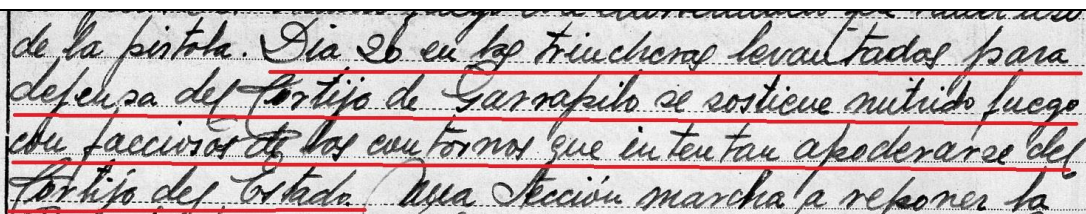 de la pistola. Dia 20 en las trincheras levantadas para
defensa del Cortijo de Garrapilo se sostiene nutrido fuego
con facciosos de los contornos que intentan apoderarse del
Cortijo del Estado. Una Sección marcha a reponer la